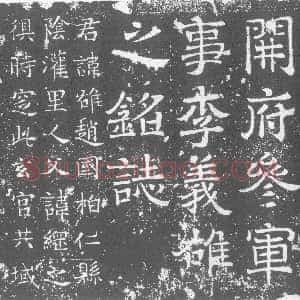 開府叅軍
事李義雄
之銘誌
君諱雄趙國柏仁縣
陰灌里人 諱繼之
俱時窆此玄宮共域